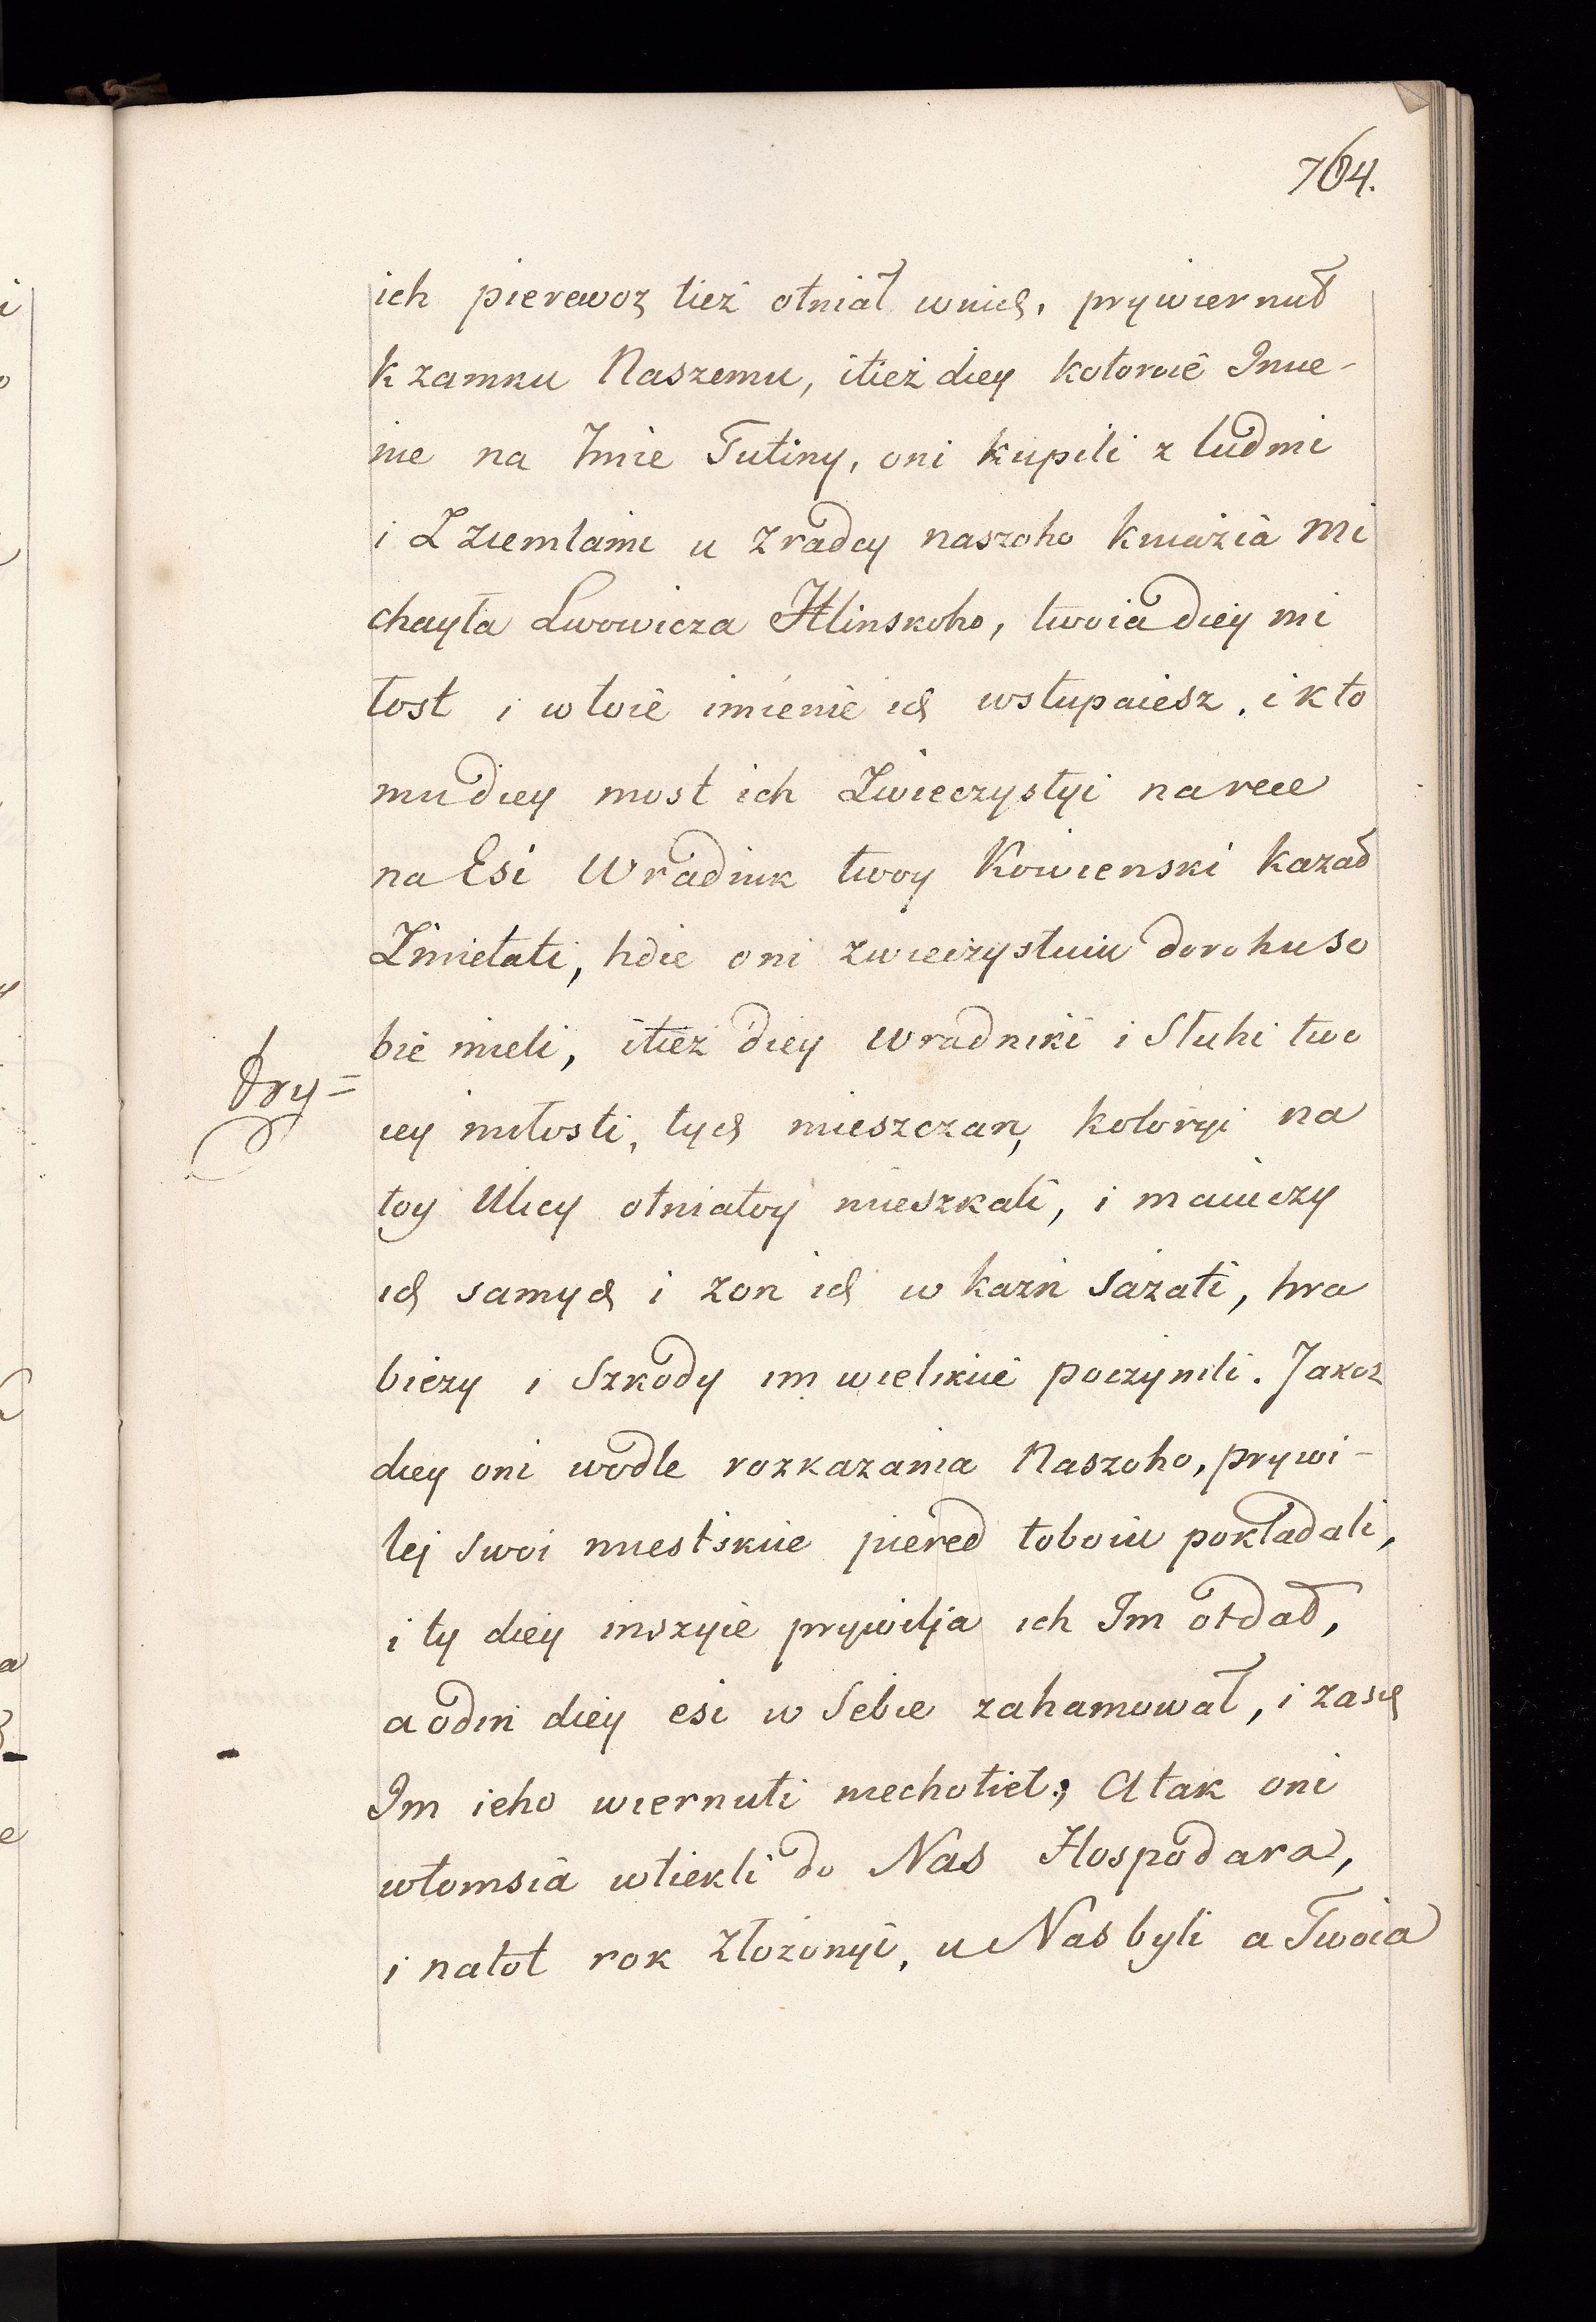 764.
ich pierewoz tież otniał w nich, prywiernuł
k zamku Naszemu, itież diey kotoroie Imie-
nie na Imie Tutiny, oni kupili z ludmi
i Z ziemlami u Zradcy naszoho kniażia Mi
chayła Lwowicza Hlinskoho, twoia diey mi
łost i w toie imienie ich wstupaiesz. i k to
mu diey most ich Zwieczystyi na rece
na Esi Wradnik twoy Kowienski kazał
Zmietati, hdie oni zwieczystuiu dorohu so
bie mieli, itież diey wradniki i Słuhi two
iey miłosti, tych mieszczan, kotoryi na
toy Ulicy otniatoy mieszkali, i maiuczy
ich samych i żon ich w kazń sażali, hra
bieży i Szkody im wielikiie poczynili. Jakoż
diey oni wodle rozkazania Naszoho, prywi-
lej swoi miestskiie piered toboiu pokładali,
i ty diey inszyie prywilja ich Im otdał,
a odin diey esi w Sebie zahamował, i zasię
Im ieho wiernuti niechotieł; A tak oni
wtomsia utiekli do Nas Hospodara,
i natot rok Złożonyi, u Nas byli a Twoia